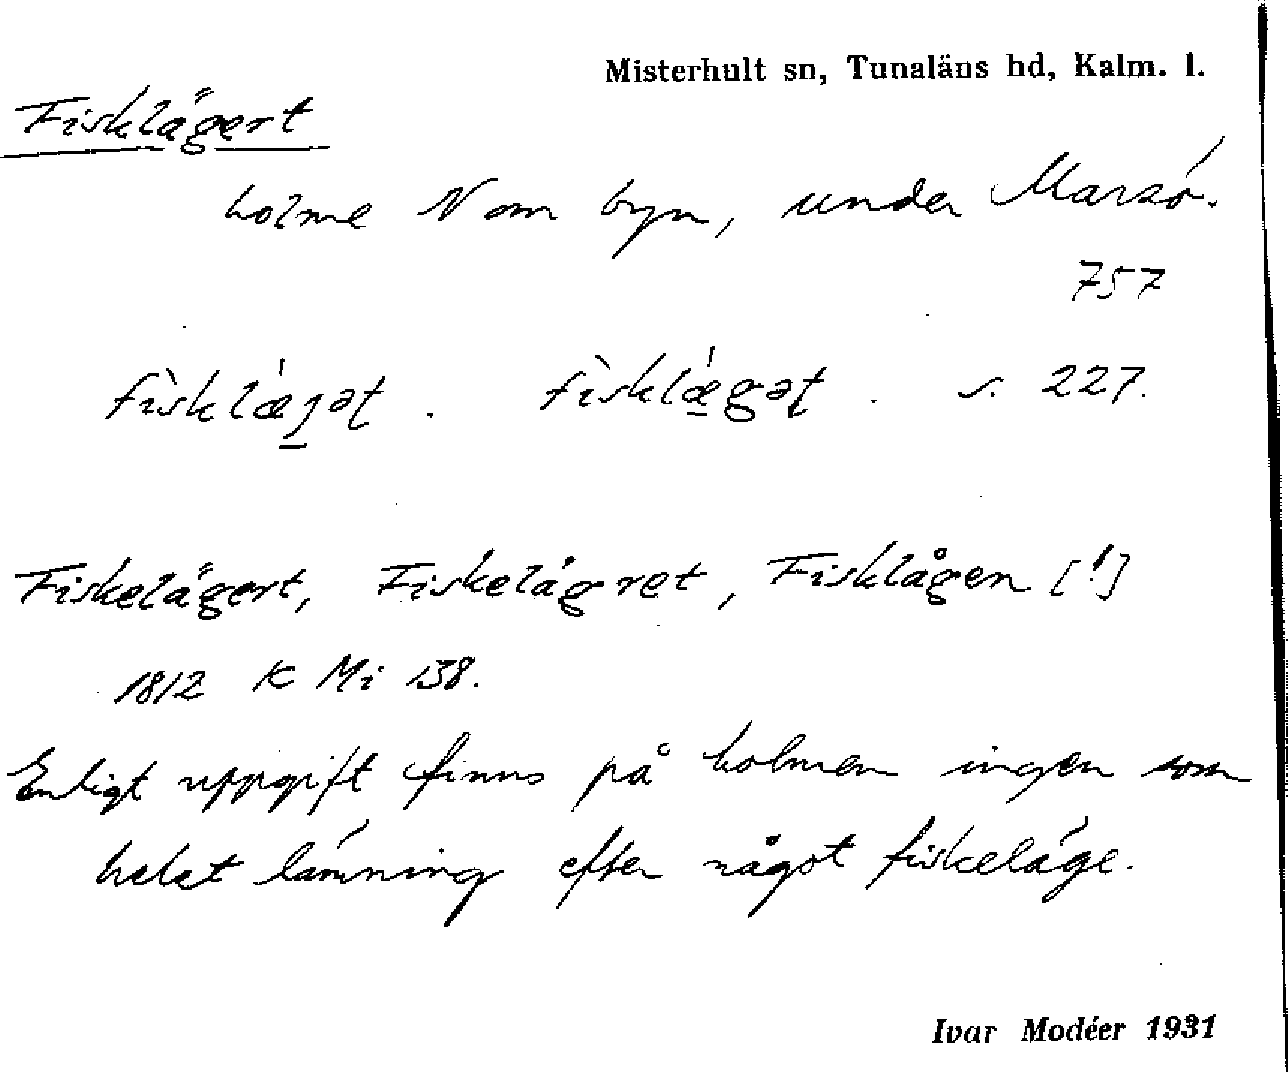 Misterhult sn, Tunaläns hd, Kalm. l.
Fisklägert
holme N om byn, under Marsö.
757
s. 227.
Fiskelägert, Fiskelägret, Fisklågen [!]
1812 K Mi 138.
Enligt uppgift finns på holmen ingen som
helst lämning efter något fiskeläge.
Ivar Modéer 1931